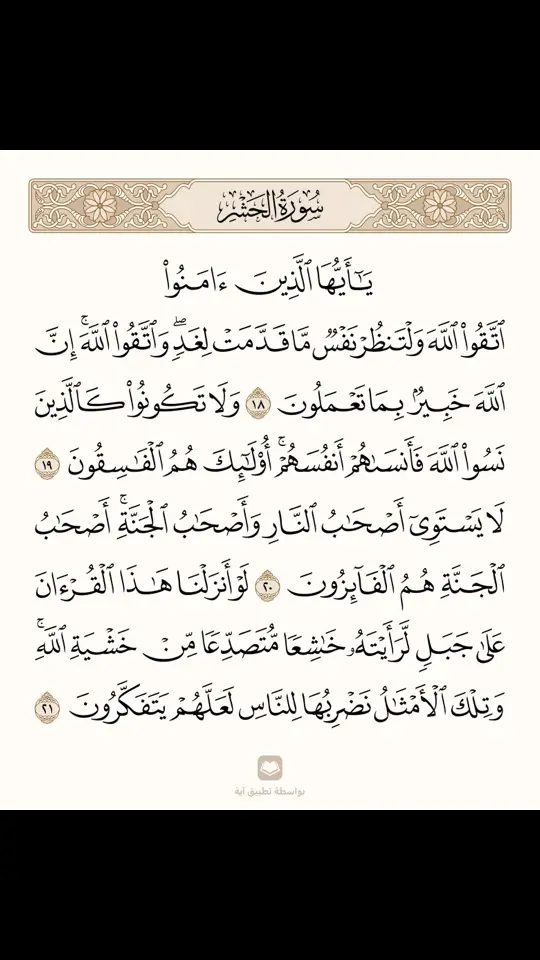 سُورَةُ الحَشْرِ
يَـٰٓأَيُّهَا ٱلَّذِينَ ءَامَنُوا۟
ٱتَّقُوا۟ ٱللَّهَ وَلْتَنظُرْ نَفْسٌ مَّا قَدَّمَتْ لِغَدٍ ۖ وَٱتَّقُوا۟ ٱللَّهَ ۚ إِنَّ
ٱللَّهَ خَبِيرٌۢ بِمَا تَعْمَلُونَ ١٨ وَلَا تَكُونُوا۟ كَٱلَّذِينَ
نَسُوا۟ ٱللَّهَ فَأَنسَىٰهُمْ أَنفُسَهُمْ ۚ أُو۟لَـٰٓئِكَ هُمُ ٱلْفَـٰسِقُونَ ١٩
لَا يَسْتَوِىٓ أَصْحَـٰبُ ٱلنَّارِ وَأَصْحَـٰبُ ٱلْجَنَّةِ ۚ أَصْحَـٰبُ
ٱلْجَنَّةِ هُمُ ٱلْفَآئِزُونَ ٢٠ لَوْ أَنزَلْنَا هَـٰذَا ٱلْقُرْءَانَ
عَلَىٰ جَبَلٍ لَّرَأَيْتَهُۥ خَـٰشِعًا مُّتَصَدِّعًا مِّنْ خَشْيَةِ ٱللَّهِ ۚ
وَتِلْكَ ٱلْأَمْثَـٰلُ نَضْرِبُهَا لِلنَّاسِ لَعَلَّهُمْ يَتَفَكَّرُونَ ٢١
بواسطة تطبيق آية